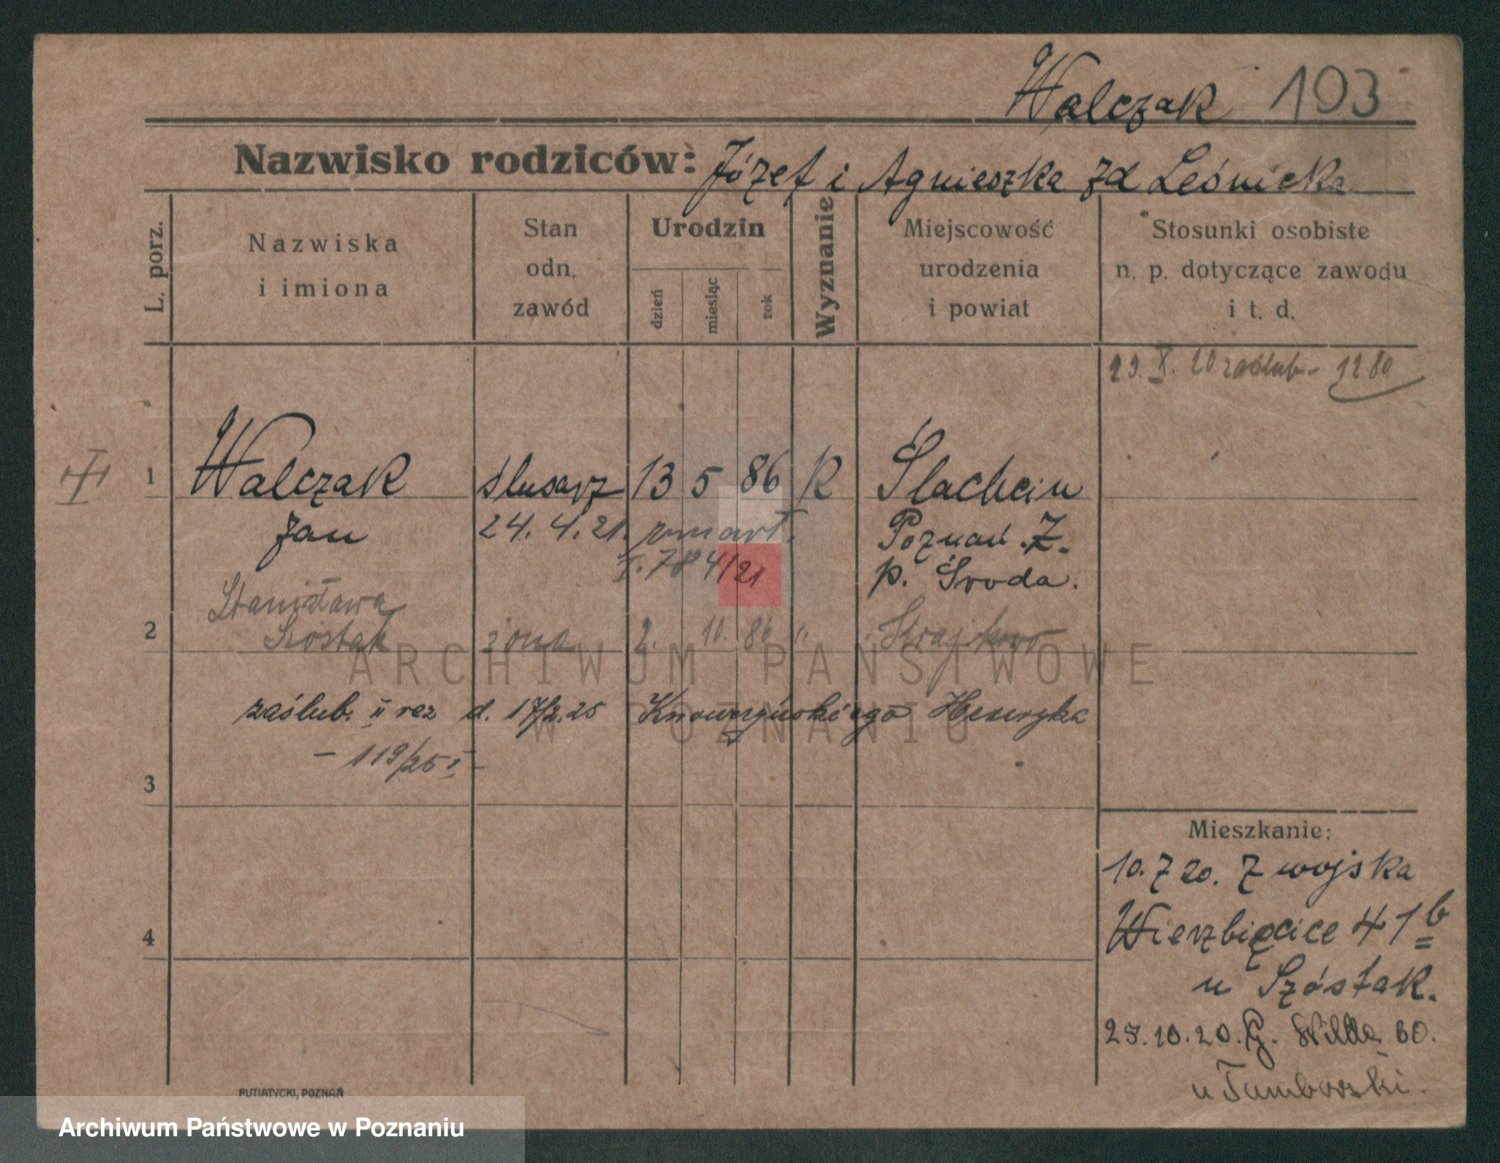 Walczak 103
Nazwisko rodziców: Józef i Agnieszka zd Leśnicka
L. porz.
Nazwiska
i imiona
Stan
odn.
zawód
Urodzin
dzień
miesiąc
rok
Wyznanie
Miejscowość
urodzenia
i powiat
Stosunki osobiste
n. p. dotyczące zawodu
i t. d.
29. X. 20 zaślub. 1280
1 Walczak ślusarz 13 5 86 R Ślachcin
Jan 24. 4. 21. zmarł. Poznań. Z.
784/21 p. Środa.
Stanisława
2 Szóstak żona 2. 10. 86 "
zaślub. II raz d. 17/2.25 Henryka
- 119/25 I -
3
4
Mieszkanie:
10.7 20. Z wojska
Wierzbięcice 41b
u Szóstak.
10.20. G. Wilda 60.
u
PUTIATYCKI, POZNAŃ
ARCHIWUM PAŃSTWOWE
W POZNANIU
Archiwum Państwowe w Poznaniu